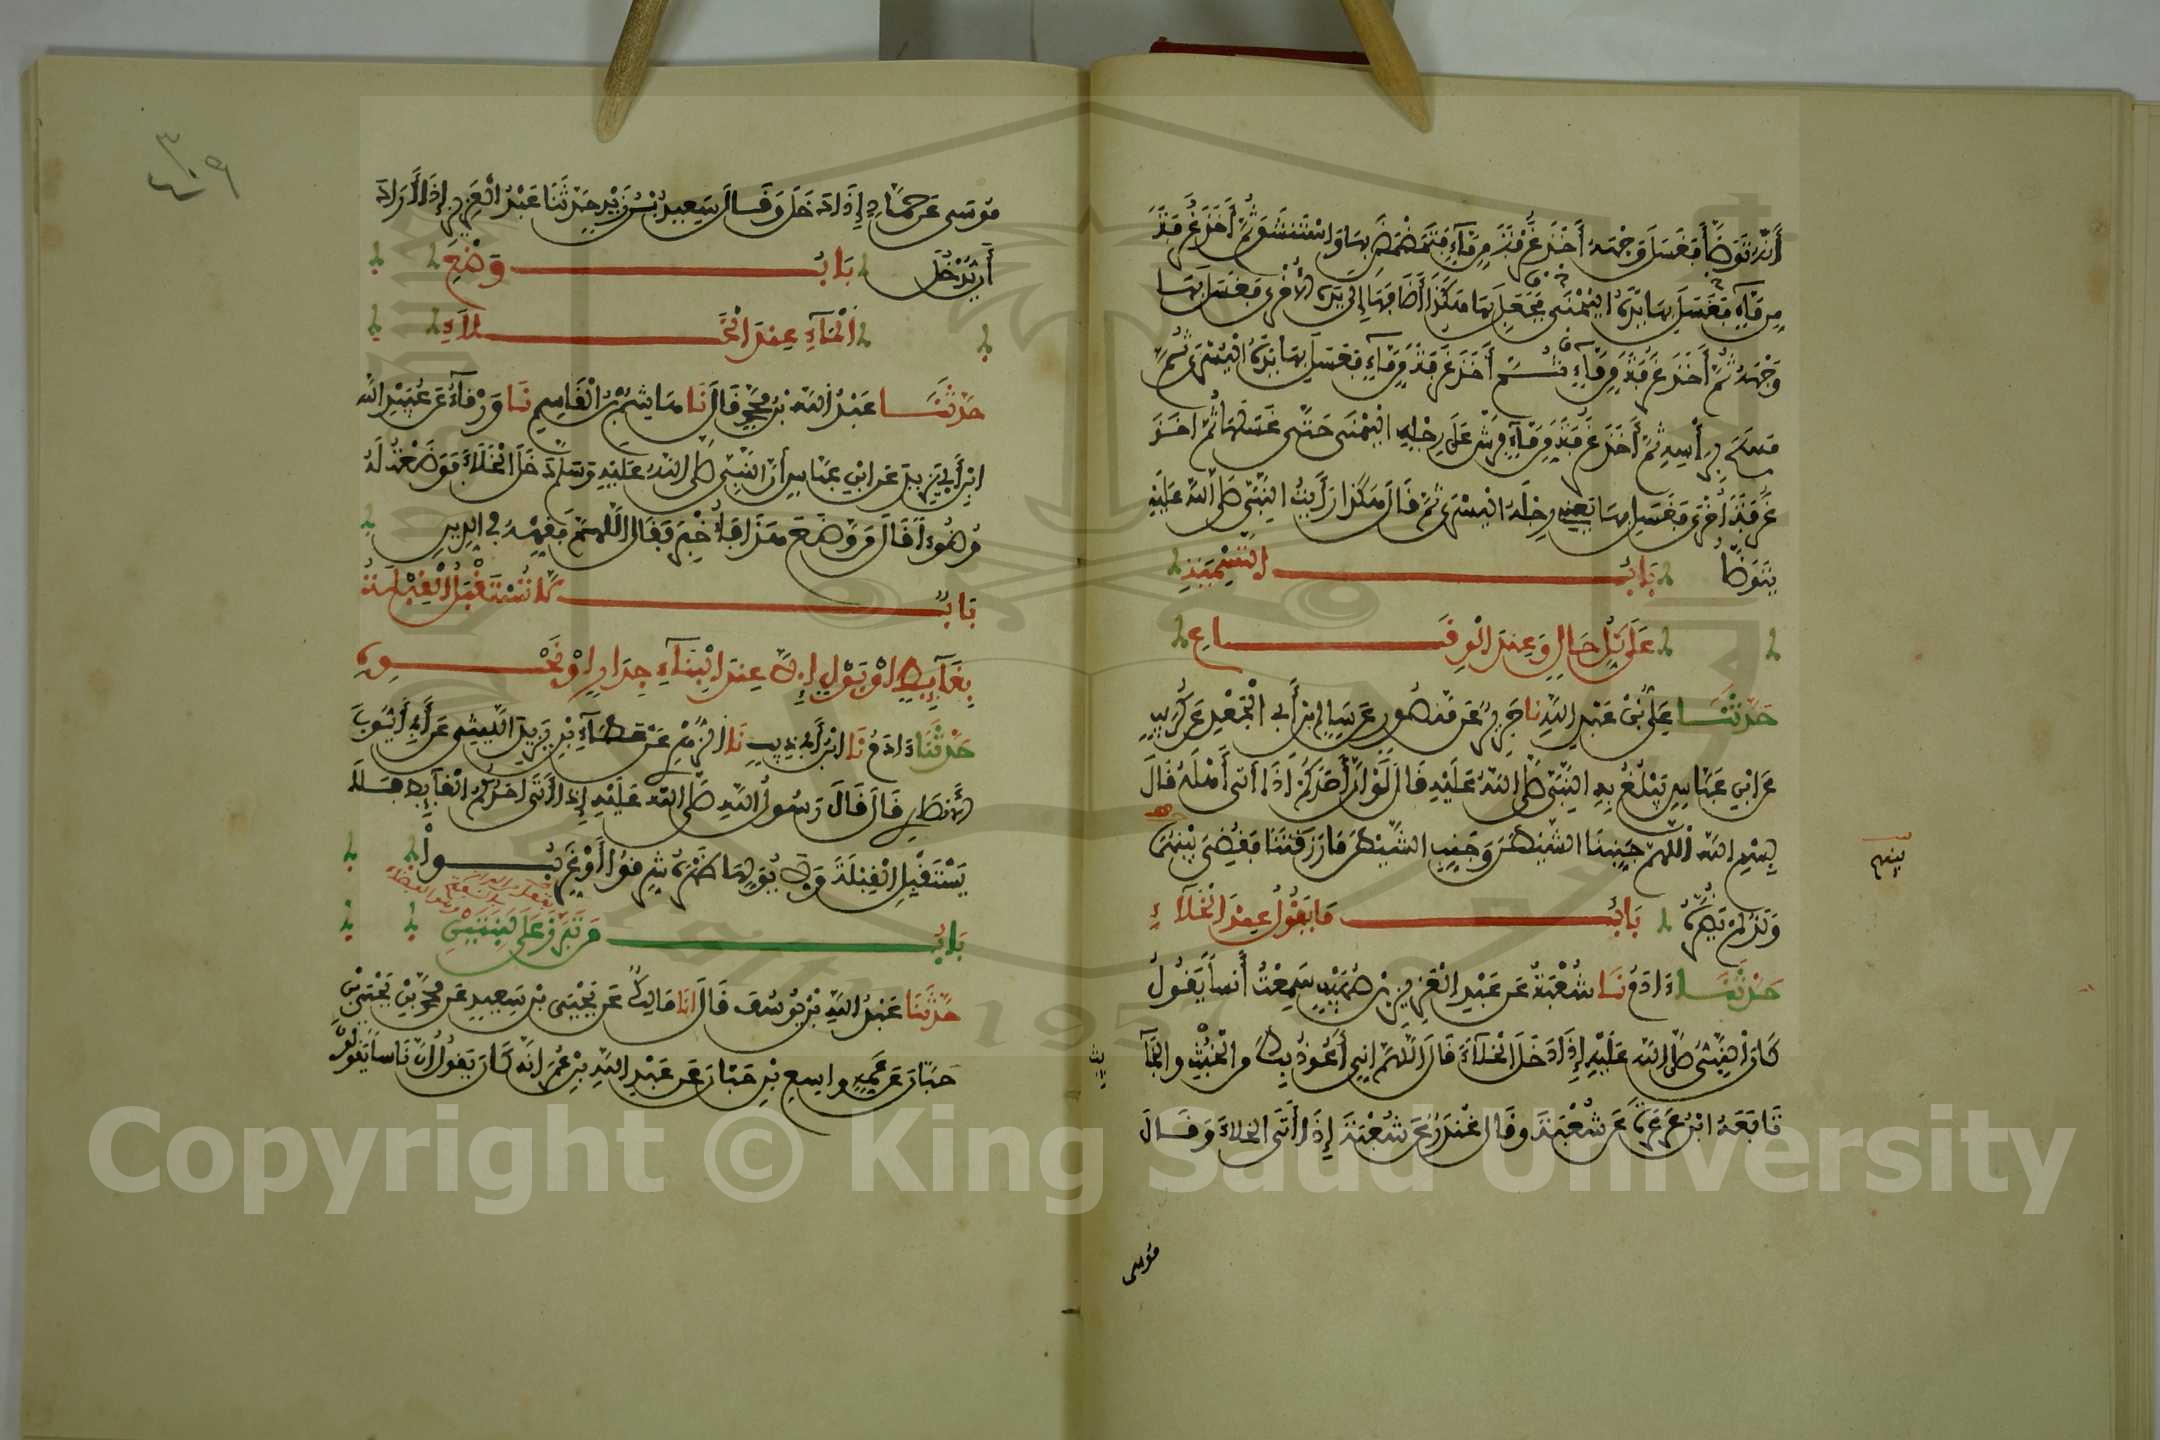 أنه توضأ فغسل وجهه أخذ غرفة من ماء فتمضمض بها واستنشق ثم أخذ غرفة
من ماء فغسل بها يده اليمنى فجعل بها هكذا أضافها إلى يده الأخرى فغسل بها
وجهه ثم أخذ غرفة من ماء ثم أخذ غرفة من ماء فغسل بها يده اليسرى ثم
مسح برأسه ثم أخذ غرفة من ماء فرش على رجله اليمنى حتى غسلها ثم أخذ
غرفة أخرى فغسل بها يعني رجله اليسرى ثم قال هكذا رأيت النبي صلى الله عليه
يتوضأ باب التسمية
على كل حال وعند الوقاع
حدثنا علي بن عبد الله نا جرير عن منصور عن سالم بن أبي الجعد عن كريب
عن ابن عباس يبلغ به النبي صلى الله عليه قال لو أن أحدكم إذا أتى أهله قال
بسم الله اللهم جنبنا الشيطن وجنب الشيطن ما رزقتنا فقضي بينهما
بينهم
ولد لم يضره باب ما يقول عند الخلاء
حدثنا ءادم نا شعبة عن عبد العزيز بن صهيب سمعت أنسا يقول
كان النبي صلى الله عليه إذا دخل الخلاء قال اللهم إني أعوذ بك من الخبث والخبآ
يث
تابعه ابن عرعرة عن شعبة وقال غندر عن شعبة إذا أتى الخلاء وقال
موسى
٣٠٩
موسى عن حماد إذا دخل وقال سعيد بن زيد حدثنا عبد العزيز إذا أراد
أن يدخل باب وضع
الماء عند الخلاء
حدثنا عبد الله بن محمد قال نا هاشم بن القاسم نا ورقاء عن عبيد الله
ابن أبي يزيد عن ابن عباس أن النبي صلى الله عليه وسلم دخل الخلاء فوضعت له
وضوءا قال من وضع هذا فأخبر فقال اللهم فقهه في الدين
باب لا تستقبل القبلة
بغآيط أو بول إلا عند البناء جدار أو نحوه
حدثنا ءادم نا ابن أبي ذيب نا الزهري عن عطاء بن يزيد الليثي عن أبي أيوب
الأنصاري قال قال رسول الله صلى الله عليه إذا أتى أحدكم الغآيط فلا
يستقبل القبلة ولا يولها ظهره شرقوا أو غربوا
باب من تبرز على لبنتين
حدثنا عبد الله بن يوسف قال انا مالك عن يحيى بن سعيد عن محمد بن يحيى بن
حبان عن عمه واسع بن حبان عن عبد الله بن عمر انه كان يقول إن ناسا يقولون
Copyright © King Saud University
1957